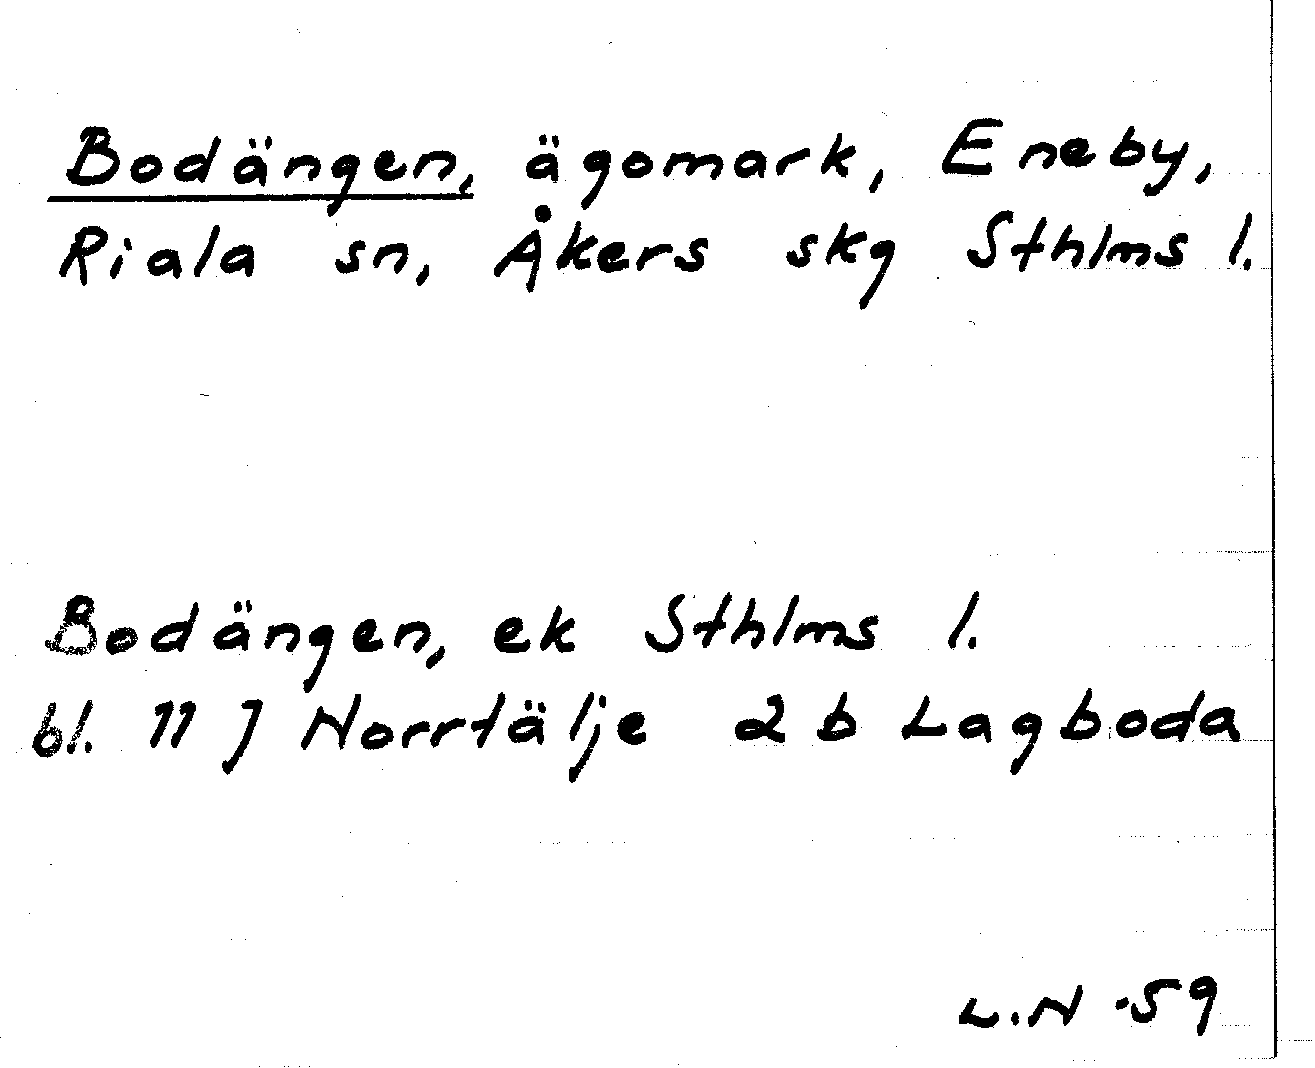 Bodängen, ägomark, Eneby,
Riala sn, Åkers skg Sthlms l.
Bodängen, ek Sthlms l.
bl. 11 J Norrtälje 2 b Lagboda
L.N -59